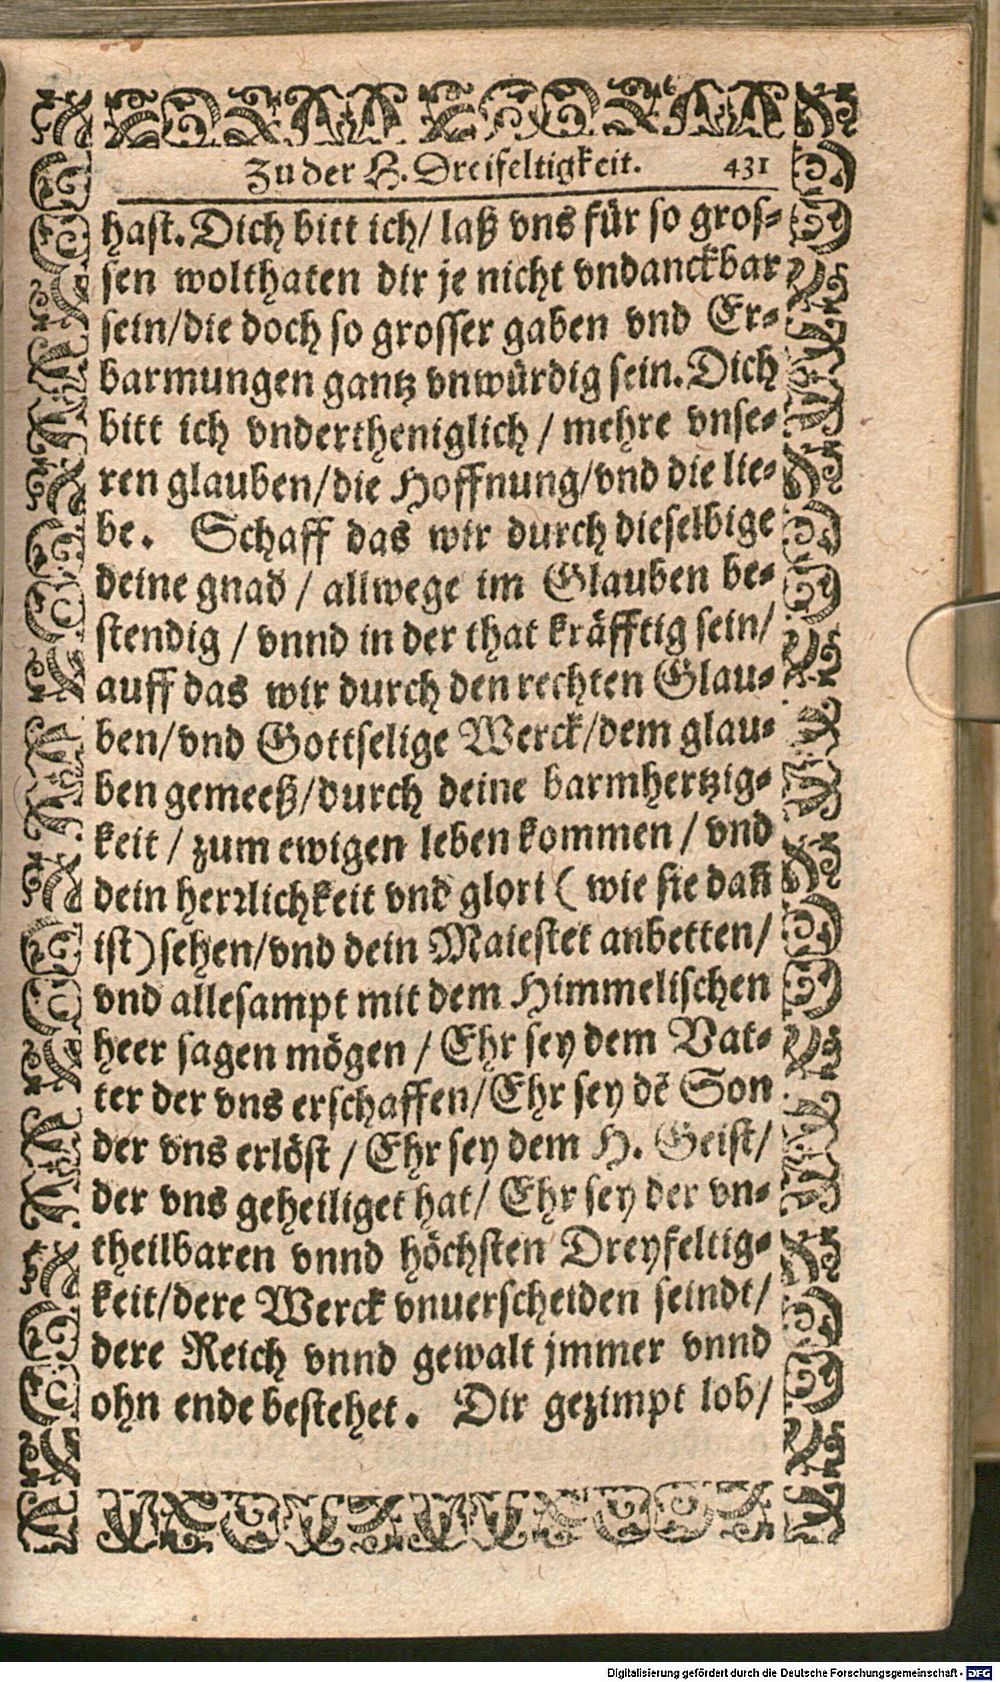 Zu der H. Dreifeltigkeit. 431
hast. Dich bitt ich/ laß vns für so gros-
sen wolthaten dir je nicht vndanckbar
sein/die doch so grosser gaben vnd Er-
barmungen gantz vnwürdig sein. Dich
bitt ich vndertheniglich / mehre vnse-
ren glauben/die Hoffnung/vnd die lie-
be. Schaff das wir durch dieselbige
deine gnad / allwege im Glauben be-
stendig / vnnd in der that kräfftig sein/
auff das wir durch den rechten Glau-
ben/vnd Gottselige Werck/dem glau-
ben gemeeß/durch deine barmhertzig-
keit / zum ewigen leben kommen / vnd
dein herꝛlichkeit vnd glori ( wie sie dañ
ist) sehen/vnd dein Maiestet anbetten/
vnd allesampt mit dem Himmelischen
heer sagen mögen / Ehr sey dem Vat-
ter der vns erschaffen/Ehr sey dē Son
der vns erlöst / Ehr sey dem H. Geist/
der vns geheiliget hat/ Ehr sey der vn-
theilbaren vnnd höchsten Dreyfeltig-
keit/dere Werck vnuerscheiden seindt/
dere Reich vnnd gewalt jmmer vnnd
ohn ende bestehet. Dir gezimpt lob/
Digitalisierung gefördert durch die Deutsche Forschungsgemeinschaft - DFG